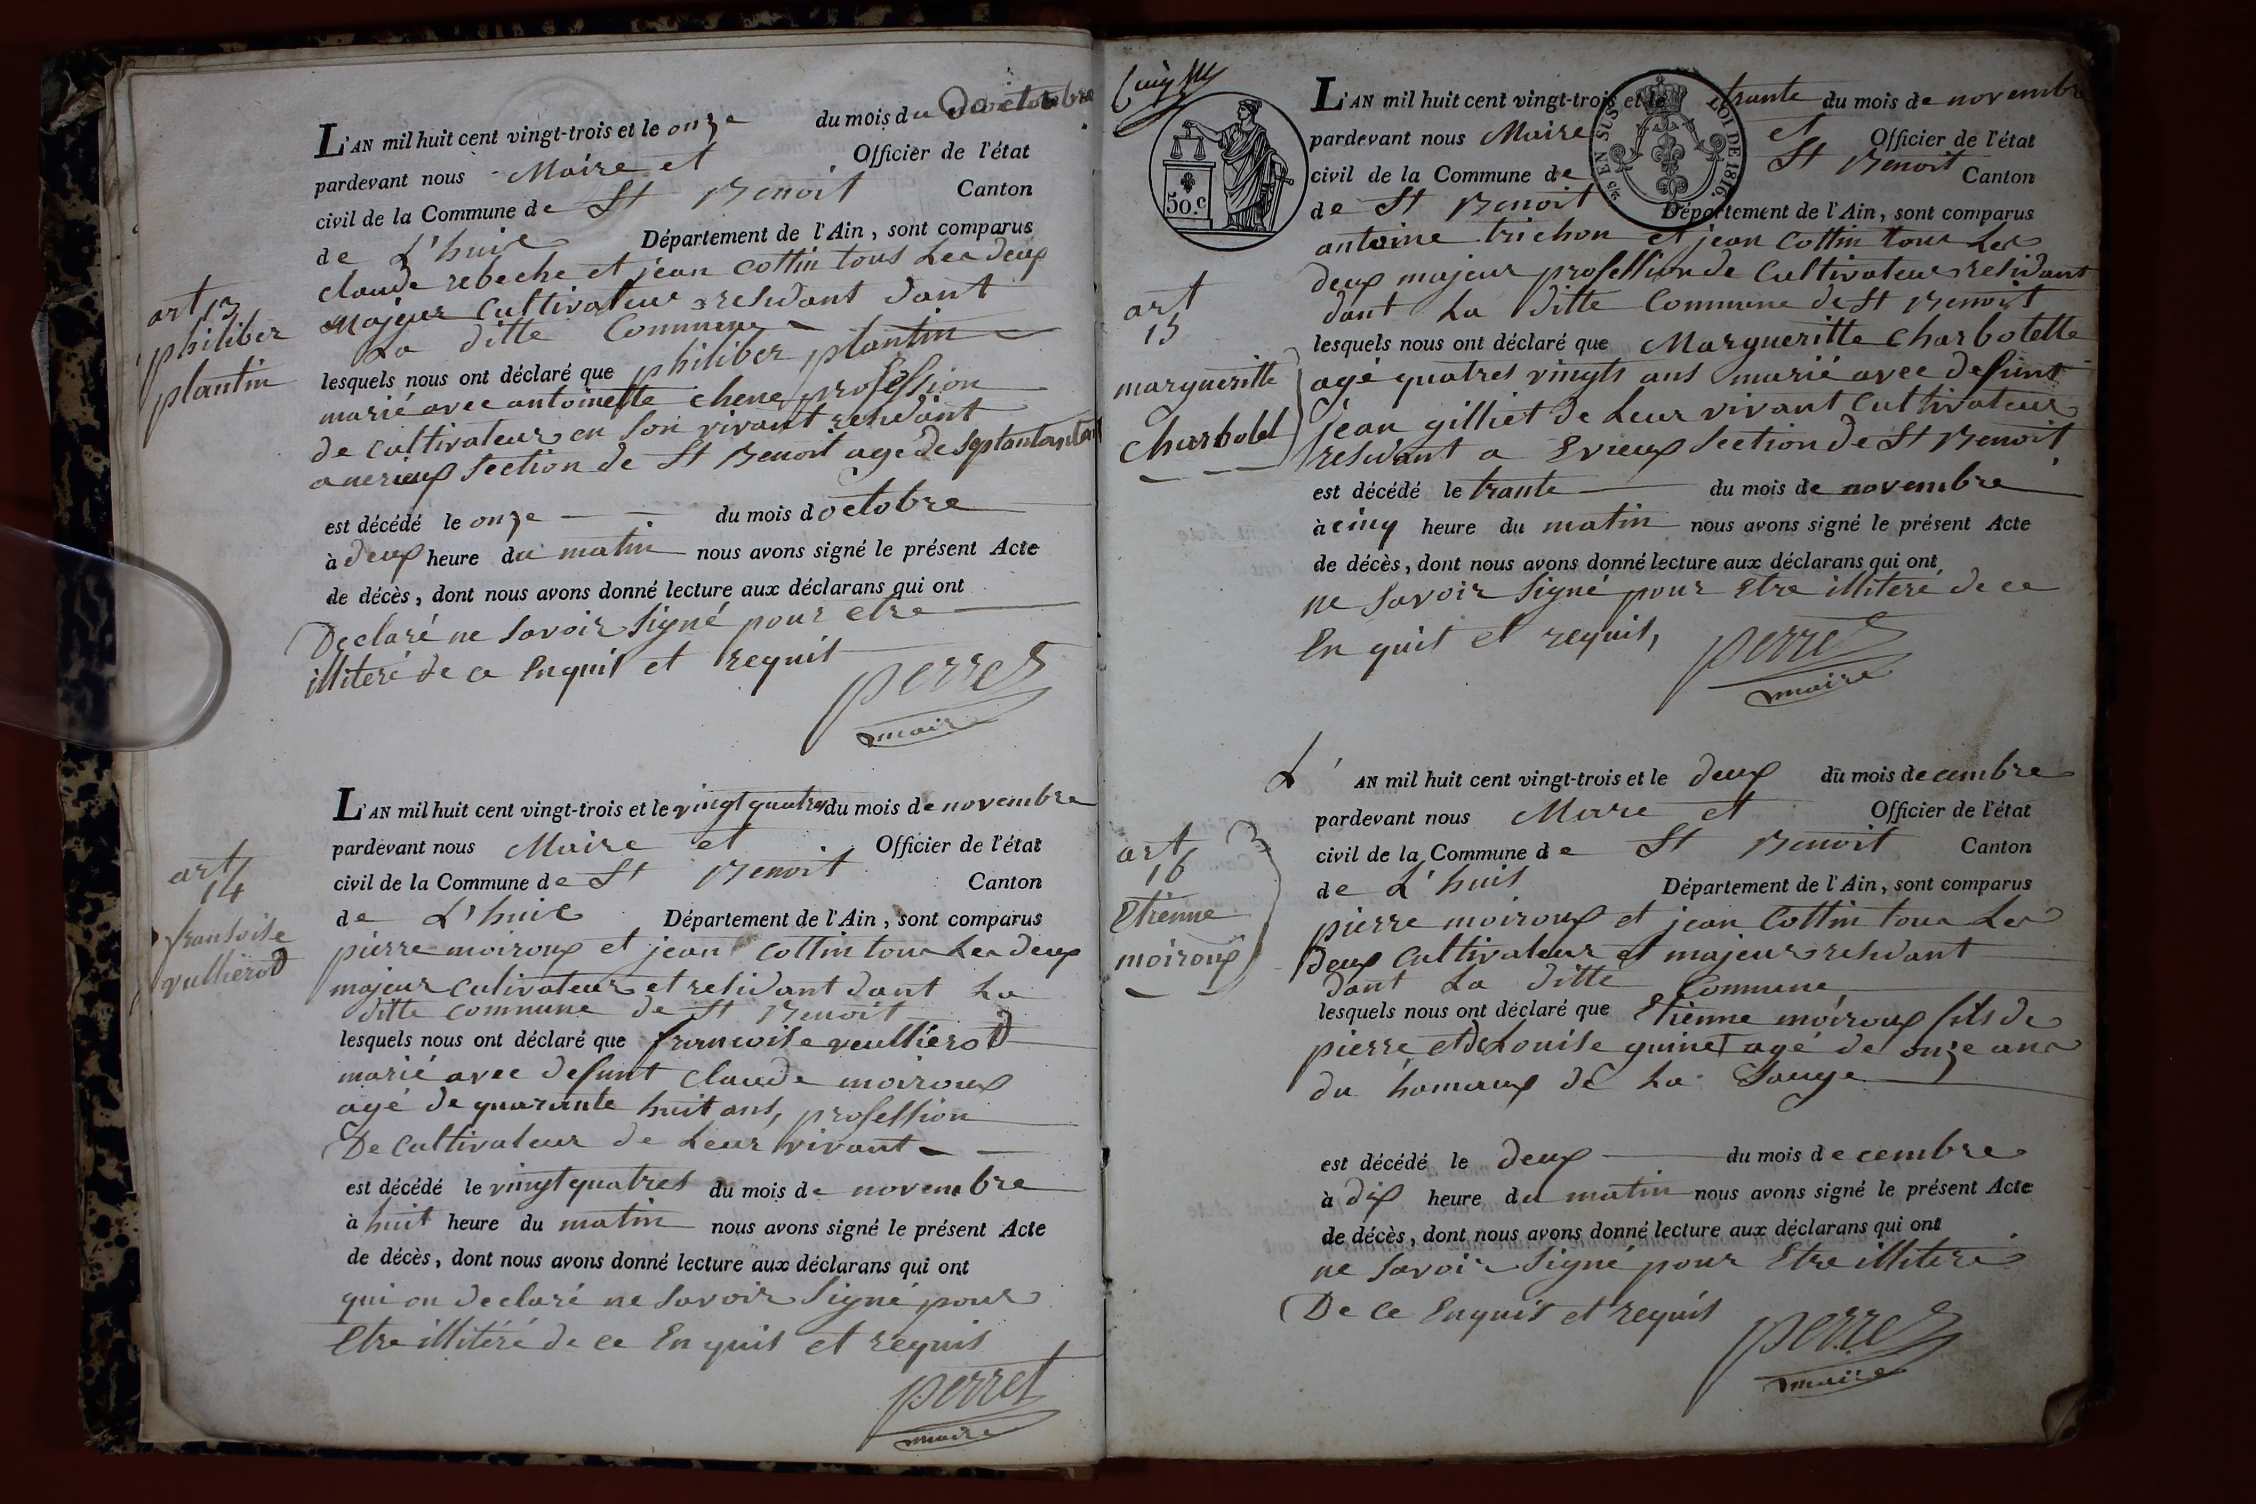 L'AN mil huit cent vingt-trois et le onze du mois du doctobre
pardevant nous Maire et Officier de l'état
civil de la Commune de St Benoit Canton
de L'huis Département de l'Ain, sont comparus
claude rebeche et jean cottin tous Les deux
Majeur Cultivateur residant dant
La ditte Commune
lesquels nous ont déclaré que philiber plantin
marié avec antoinette chene profession
de cultivateur en son vivant residant
a uerieux section de St Benoit agé de
est décédé le onze du mois doctobre
à deux heure du matin nous avons signé le présent Acte
de décès, dont nous avons donné lecture aux déclarans qui ont
Declaré ne savoir signé pour etre
illiteré de ce Enquit et requit
perret
maire
art 13
philiber
plantin
L'AN mil huit cent vingt-trois et le vingt quatres du mois de novembre
pardevant nous Maire et Officier de l'état
civil de la Commune de St Benoit Canton
de L'huis Département de l'Ain, sont comparus
pierre moiroux et jean cottin tous Les deux
majeur cutivateur et residant dant La
ditte commune de St Benoit
lesquels nous ont déclaré que francoise veullierod
marié avec defunt claude moiroux
agé de quarante huit ans, profession
De cultivateur de Leur vivant
est décédé le vingt quatres du mois de novembre
à huit heure du matin nous avons signé le présent Acte
de décès, dont nous avons donné lecture aux déclarans qui ont
qui on declaré ne savoir signé pour
Etre illitéré de ce Enquit et requis
perret
maire
art
14
fransoise
vullierod
50.c
EN SUS
LOI DE 1816.
L'AN mil huit cent vingt-trois et le trante du mois de novembre
pardevant nous Maire et Officier de l'état
civil de la Commune de St Benoit Canton
de St Benoit Département de l'Ain, sont comparus
antoine trichon et jean cottin tous Les
deux majeur profession de Cultivateur residant
dant La ditte Commune de St Benoit
lesquels nous ont déclaré que Margueritte Charbotelle
agé quatres vingts ans marié avec defunt
jean gilliet de Leur vivant Cultivateur
residant a Evieux section de St Benoit
est décédé le trante du mois de novembre
à cinq heure du matin nous avons signé le présent Acte
de décès, dont nous avons donné lecture aux déclarans qui ont
ne savoir signé pour Etre illiteré de ce
En quit et requit,
perret
maire
art
15
margueritte
Charbotel
L'AN mil huit cent vingt-trois et le deux du mois decembre
pardevant nous Maire et Officier de l'état
civil de la Commune de St Benoit Canton
de L'huis Département de l'Ain, sont comparus
pierre moiroux et jean Cottin tous Les
deux Cultivateur et majeur residant
dant La ditte Commune
lesquels nous ont déclaré que Etienne moiroux fils de
pierre et de Louise guinet agé de onze ans
du hameaux de La Sauge
est décédé le deux du mois decembre
à dix heure du matin nous avons signé le présent Acte
de décès, dont nous avons donné lecture aux déclarans qui ont
ne savoir signé pour Etre illiteré
De ce Enquis et requis
perret
maire
art
16
Etienne
moiroux